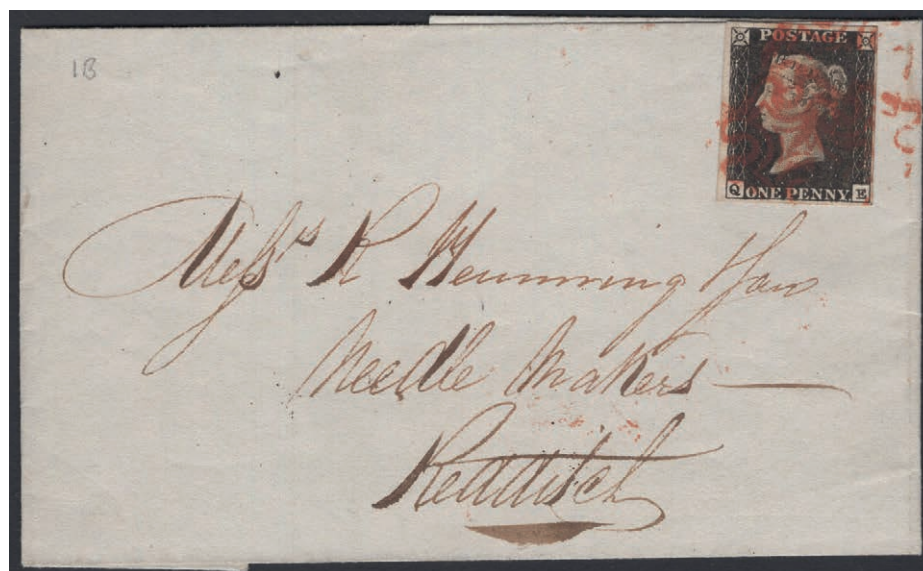 1B
POSTAGE
Q ONE PENNY. E
Messrs R Hemming & Son
Needle Makers
Redditch